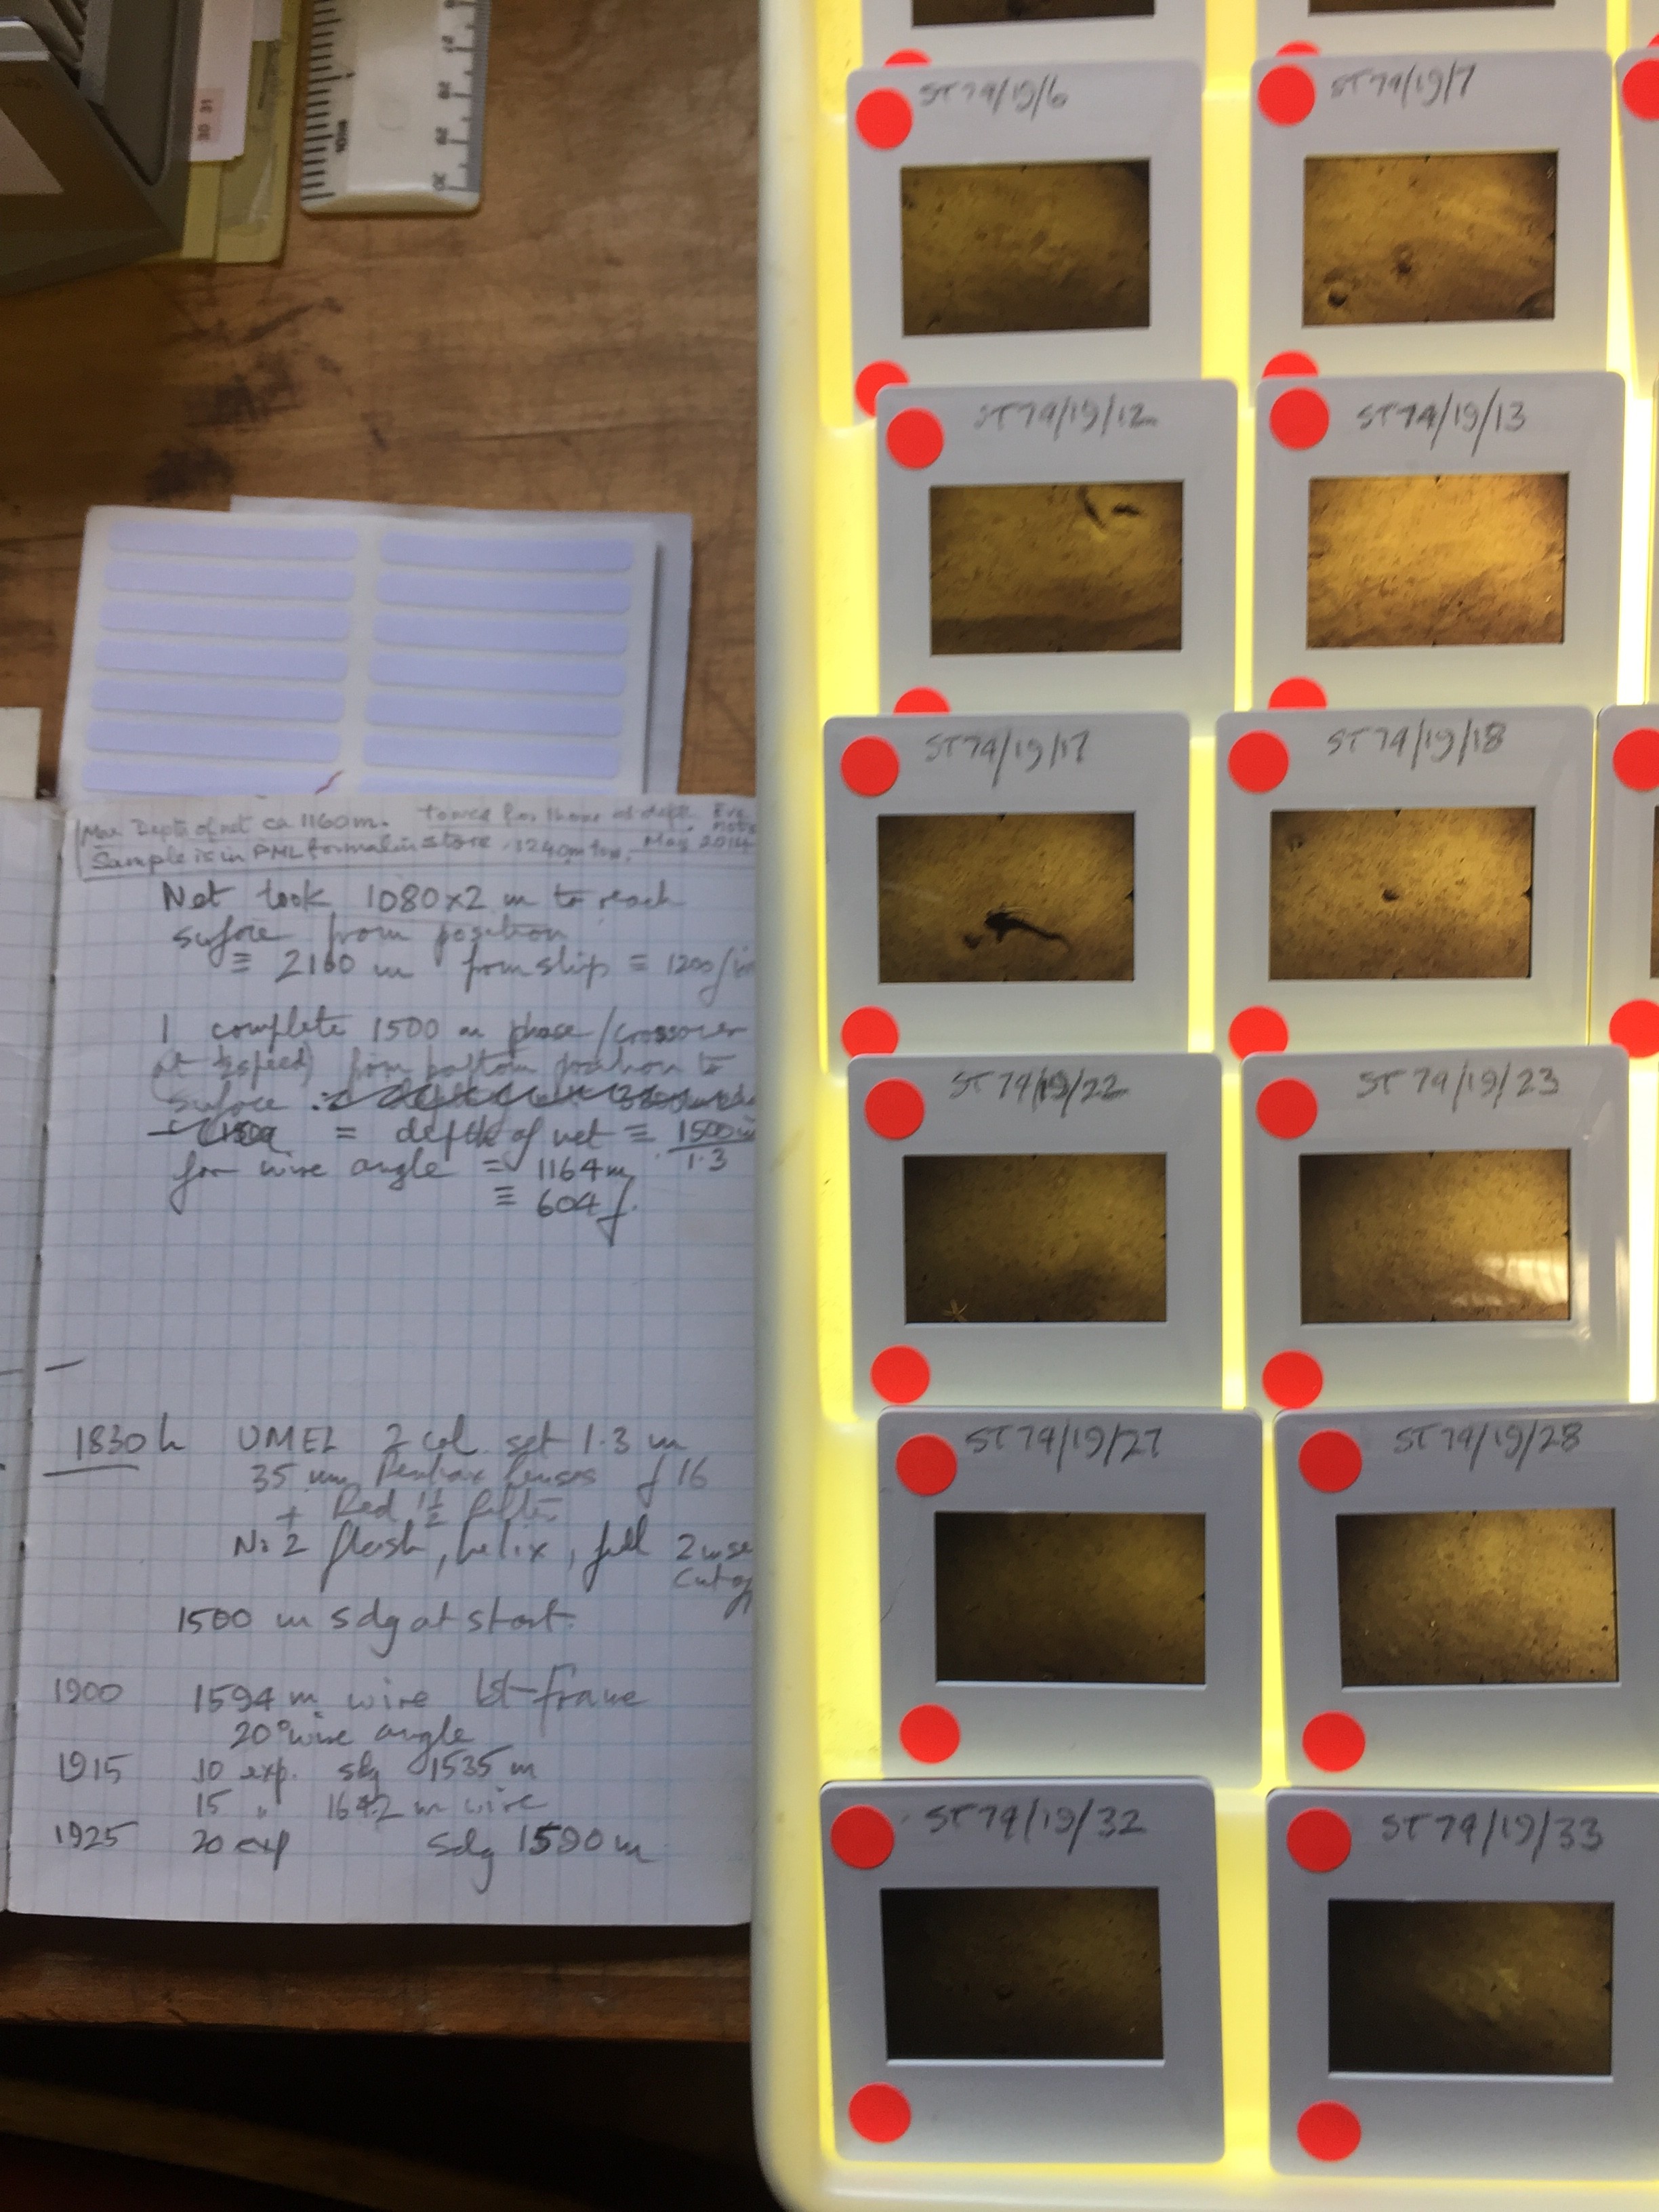 30 31
Max Depth of net ca 1160m. Towed for 1 hour at depth. Eve notes
Sample is in PML formalin store. 1240m tow. May 2014
Net took 1080x2 m to reach
surface from position
≡ 2160 m from ship ≡ 1200 f
1 complete 1500 m phase/crossover
(at ½ speed) from bottom position to
surface
= depth of net ≡ 1500 m
1.3
for wire angle = 1164 m
≡ 604 f.
1830 h UMEL 2 col. set 1.3 m
35 mm Pentax lenses f 16
+ Red ½ filter
No 2 flash, helix, full 2 msec
cutoff
1500 m sdg at start.
1900 1594 m wire 1st frame
20° wire angle
1915 10 exp. sdg 1535 m
15 " 1642 m wire
1925 20 exp sdg 1590 m
ST74/19/6
ST74/19/7
ST74/19/12
ST74/19/13
ST74/19/17
ST74/19/18
ST74/19/22
ST74/19/23
ST74/19/27
ST74/19/28
ST74/19/32
ST74/19/33